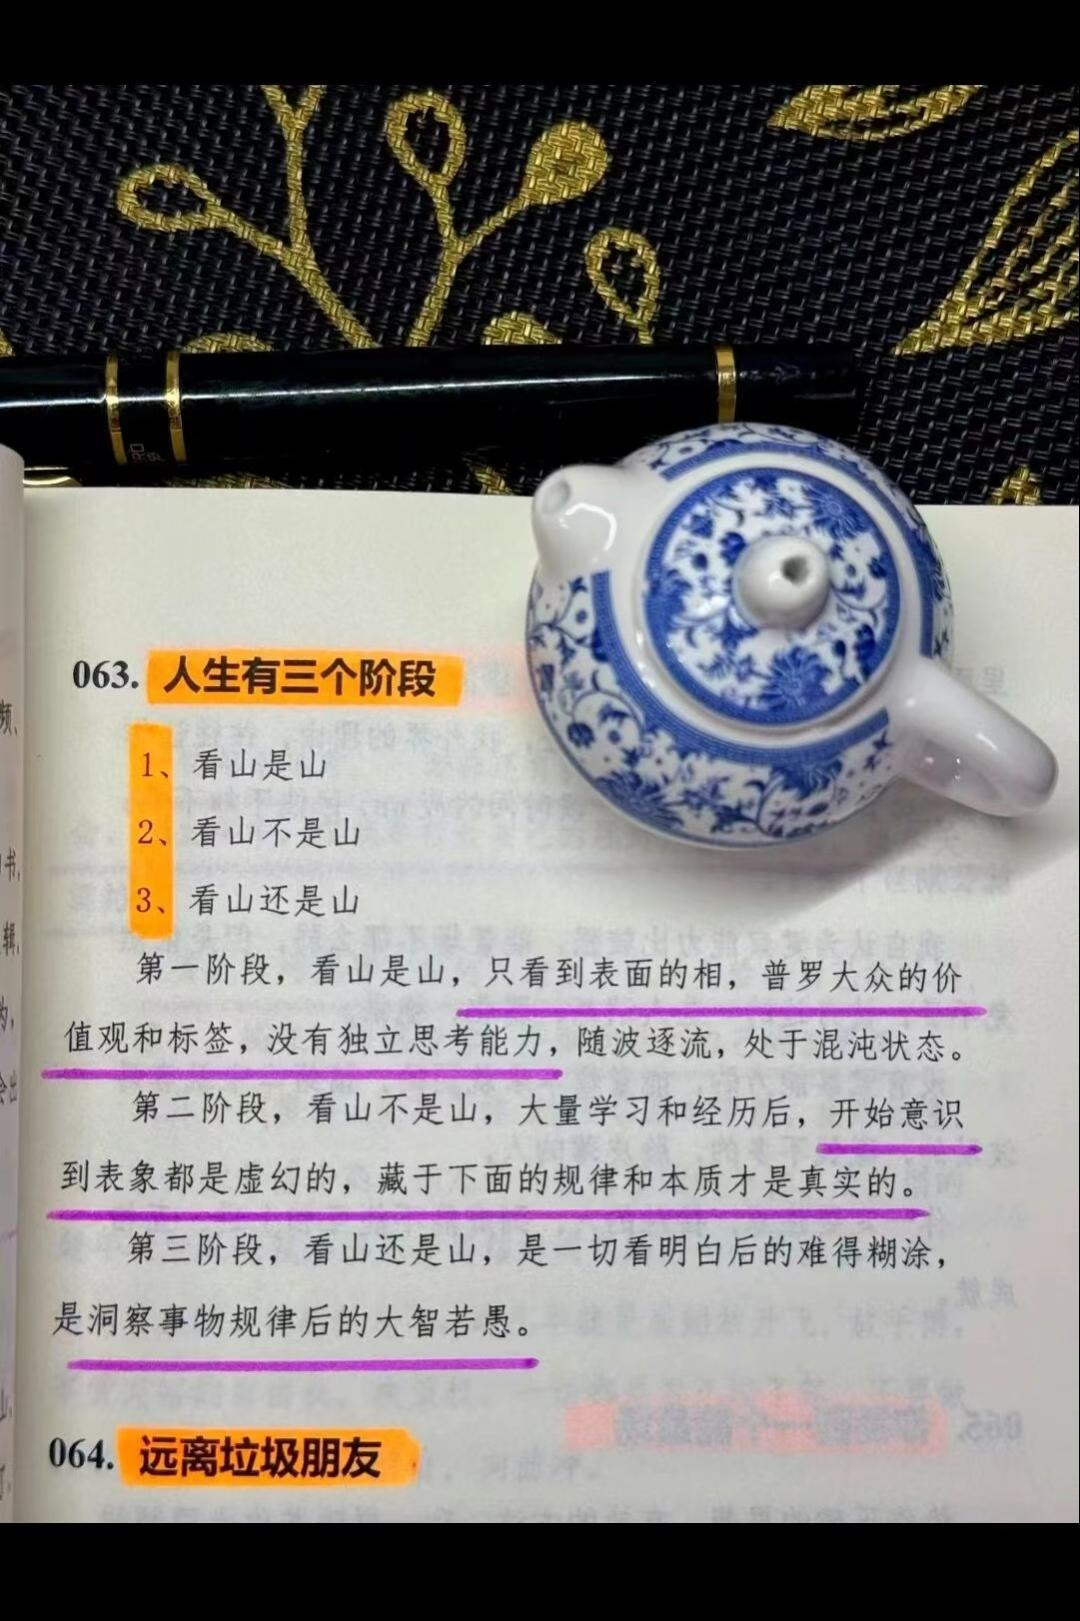 063. 人生有三个阶段
1、看山是山
2、看山不是山
3、看山还是山
第一阶段，看山是山，只看到表面的相，普罗大众的价
值观和标签，没有独立思考能力，随波逐流，处于混沌状态。
第二阶段，看山不是山，大量学习和经历后，开始意识
到表象都是虚幻的，藏于下面的规律和本质才是真实的。
第三阶段，看山还是山，是一切看明白后的难得糊涂，
是洞察事物规律后的大智若愚。
064. 远离垃圾朋友